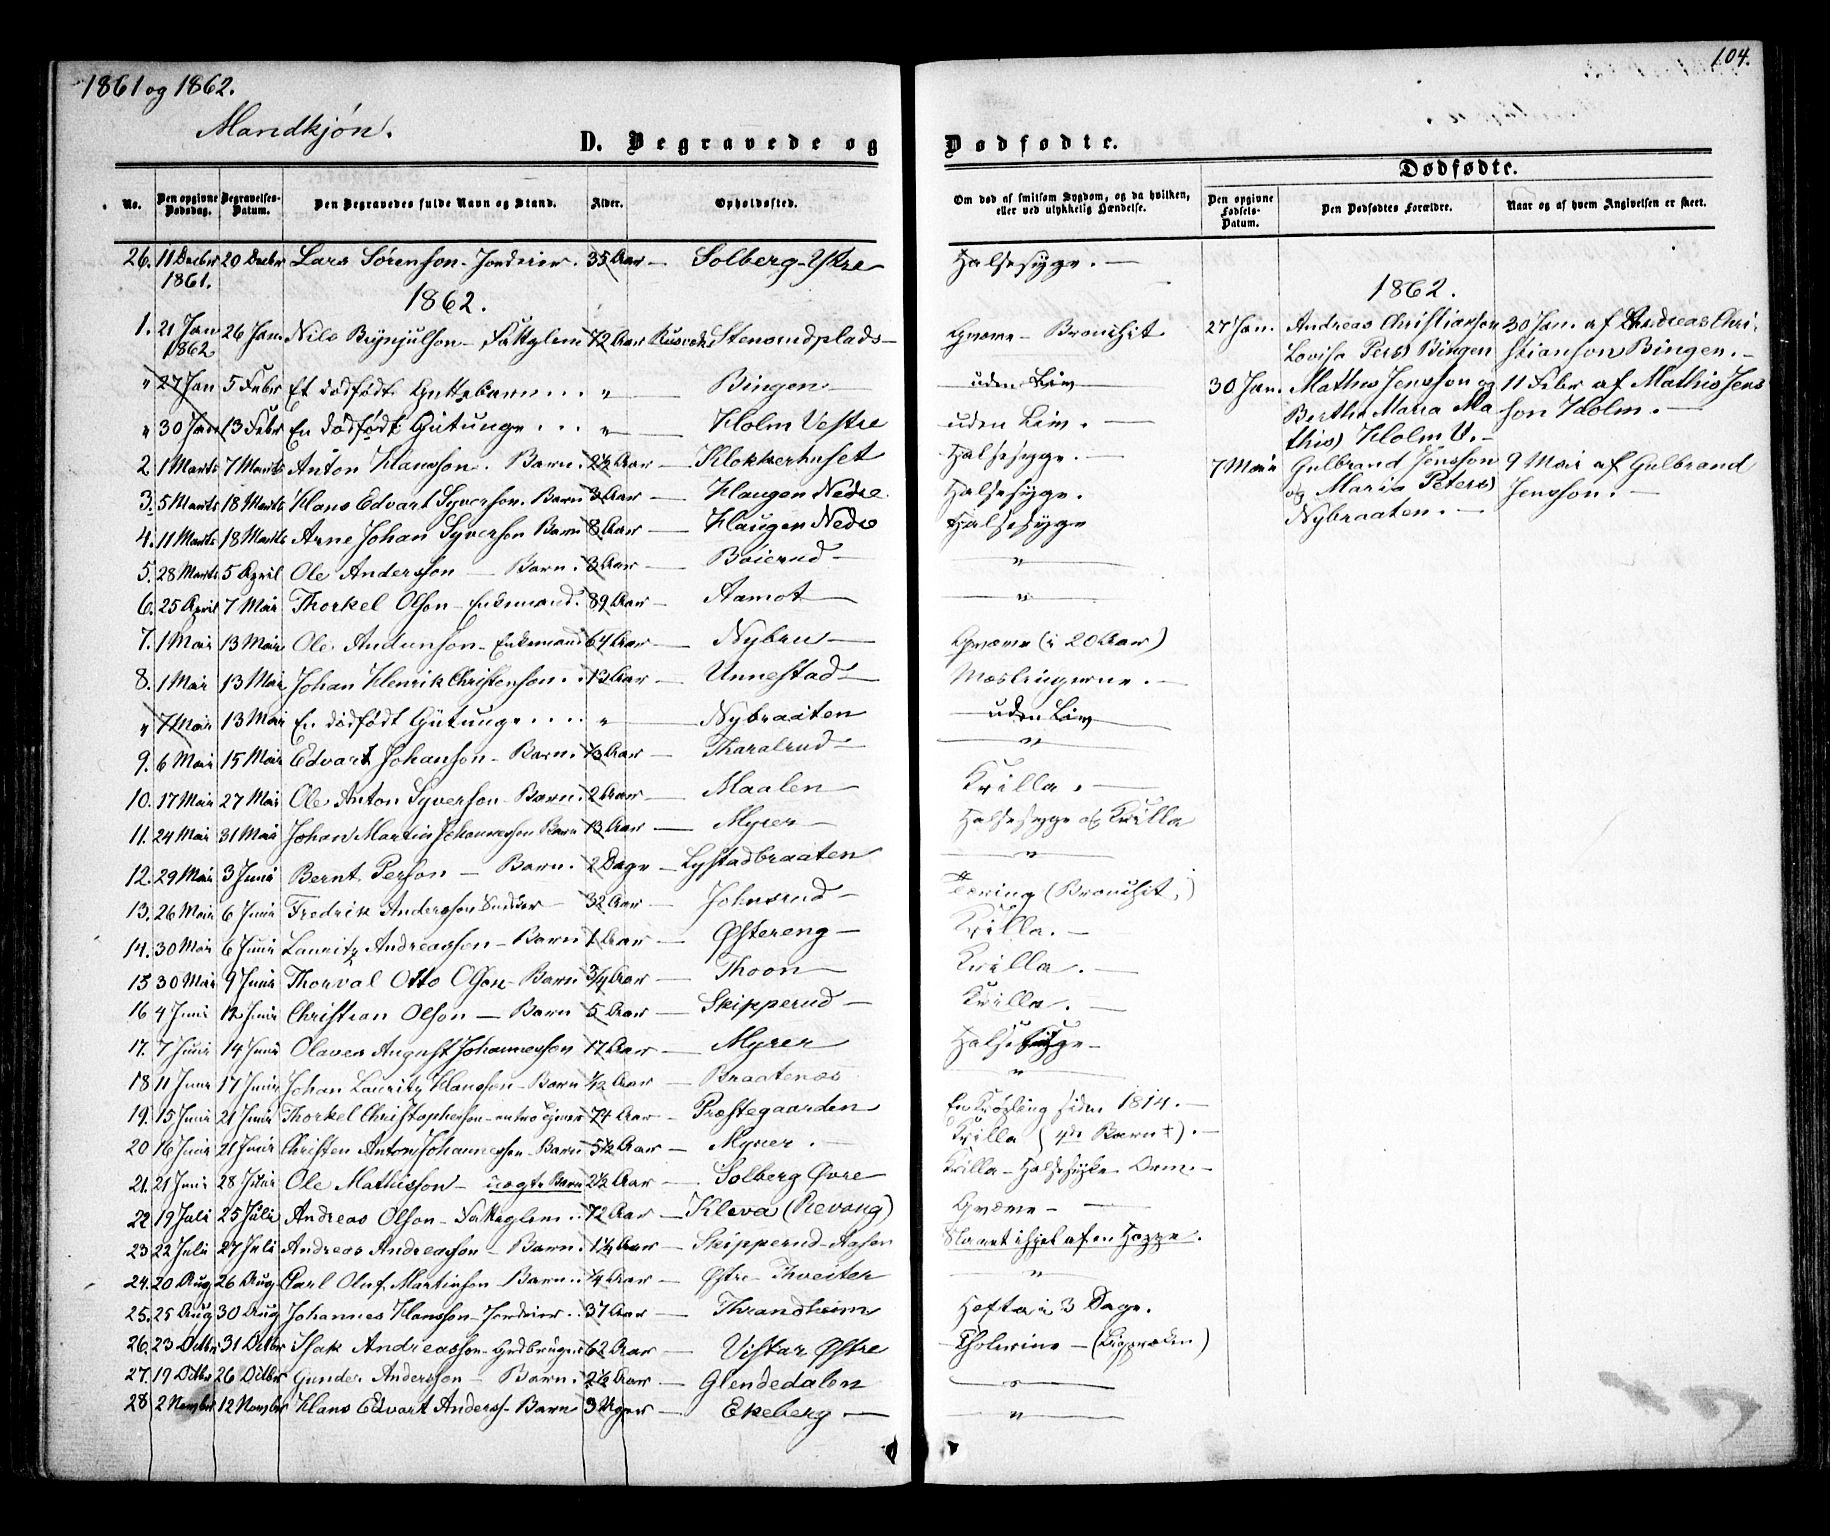 1861 og 1862.
104.
Mandkjøn.
D. Begravede og
Dødfødte.
Dødfødte.
No.
Den opgivne Dødsdag.
Begravelses-Datum.
Den Begravedes fulde Navn og Stand.
Alder.
Opholdssted.
Om død af smitsom Sygdom, og da hvilken, eller ved ulykkelig Hændelse.
Den opgivne Fødsels-Datum.
Den Dødfødtes Forældre.
Naar og af hvem Angivelsen er skeet.
26. 11 Decbr 20 Decbr Lars Sørenson - Jordeier. 35 Aar — Solberg - Ystre Halsesyge. —
1861.
1862.
1862.
1. 21 Jan 26 Jan Nils Brynjulson - Fattiglem 72 Aar Stensrudplads — - Bronchit
1862
27 Jan. Andreas Christianson 30 Jan. af Andreas Chri-
Lovisa Persd Bingen stianson Bingen. —
" 27 Jan 5 Febr Et dødfødt Guttebarn . . . " — Bingen uden Liv
30 Jan. Mathis Jensson og 11 Febr af Mathis Jens
Berthe Maria Ma son Holm. —
thisd Holm V. —
" 30 Jan 13 Febr En dødfødt Gutunge . . . " — Holm Vestre uden Liv. —
2. 1 Marts 7 Marts Anton Hansson. Barn. 2½ Aar — Klokkerhuset Halsesyge. —
7 Mai Gulbrand Jensson 9 Mai af Gulbrand
og Maria Petersd Jensson. —
Nybraaten. —
3. 5 Marts 18 Marts Hans Edvart Syverson. Barn 3 Aar — Haugen Nedre Halsesyge.
4. 11 Marts 18 Marts Arne Johan Syverson Barn 8 Aar — Haugen Nedre Halsesyge
5. 28 Marts 5 April Ole Andersson — Barn. 3 Aar — Boierud — "
6. 25 April 7 Mai Thorkel Olson - Enkemand. 89 Aar — Aamot — "
7. 1 Mai 13 Mai Ole Andunson - Enkemand 64 Aar — Nybru — (i 20 Aar)
8. 1 Mai 13 Mai Johan Henrik Christenson. . 13 Aar — Unnestad — Mæslingerne. —
" 7 Mai 13 Mai En dødfødt Gutunge . . . . " — Nybraaten uden Liv
9. 6 Mai 15 Mai Edvart Johanson - Barn. ⅓ Aar — Tharalrud — "
10. 17 Mai 27 Mai Ole Anton Syverson - Barn. 2 Aar — Maalen — Krilla. —
11. 24 Mai 31 Mai Johan Martin Johannesson Barn 13 Aar — Myrer — Halsesyge og Krilla
12. 29 Mai 3 Juni Bernt Person — Barn. 2 Dage — Lystadbraaten "
13. 26 Mai 6 Juni Fredrik Andersson — 32 Aar — Johnsrud — Tæring (Bronchit.)
14. 30 Mai 6 Juni Lauritz Andreasson - Barn 1 Aar — Østereng — Krilla. —
15 30 Mai 9 Juni Thorval Otto Olson - Barn ¾ Aar — Thoon — Krilla. —
16 4 Juni 12 Juni Christian Olson — Barn 5 Aar — Skipperud — Krilla. —
17. 7 Juni 14 Juni Olaves August Johannesson 17 Aar — Myrer Halsesyge —
18 11 Juni 17 Juni Johan Lauritz Hansson - Barn ½ Aar — Braatenes "
19. 15 Juni 21 Juni Thorkel Christopherson - 74 Aar — Præstegaarden En Krøbling siden 1814. —
20 16 Juni 21 Juni Christen Anton Johannesson - Barn 5½ Aar — Myrer. — Krilla (4de Barn †). —
21. 21 Juni 28 Juni Ole Mathisson - uægte Barn 2½ Aar — Solberg Øvre Krilla - Halsesyke —
22 19 Juli 25 Juli Andreas Olson - Fattiglem. . 72 Aar — Kleva (Revoug) —
23 22 Juli 27 Juli Andreas Andreasson - Barn. 1¼ Aar — Skipperud - Aasen Slaaet ihjel af en Hoppe.
24. 20 Aug 26 Aug Carl Oluf Martinson - Barn. ¼ Aar — Østre - Thveiter "
25. 25 Aug 30 Aug Johannes Hansson - Jordeier. . 37 Aar — Thrandheim Hefta i 3 Dage.
26. 23 Octbr 31 Octbr Isak Andreasson - Grdbruger 62 Aar — Vistar Østre Cholerine —
27. 19 Octbr 26 Octbr Gunder Andersson — Barn. 2½ Aar — Glendedalen "
28 2 Novbr 12 Novbr Hans Edvart Anderss - Barn 3 Uger — Ekeberg — "